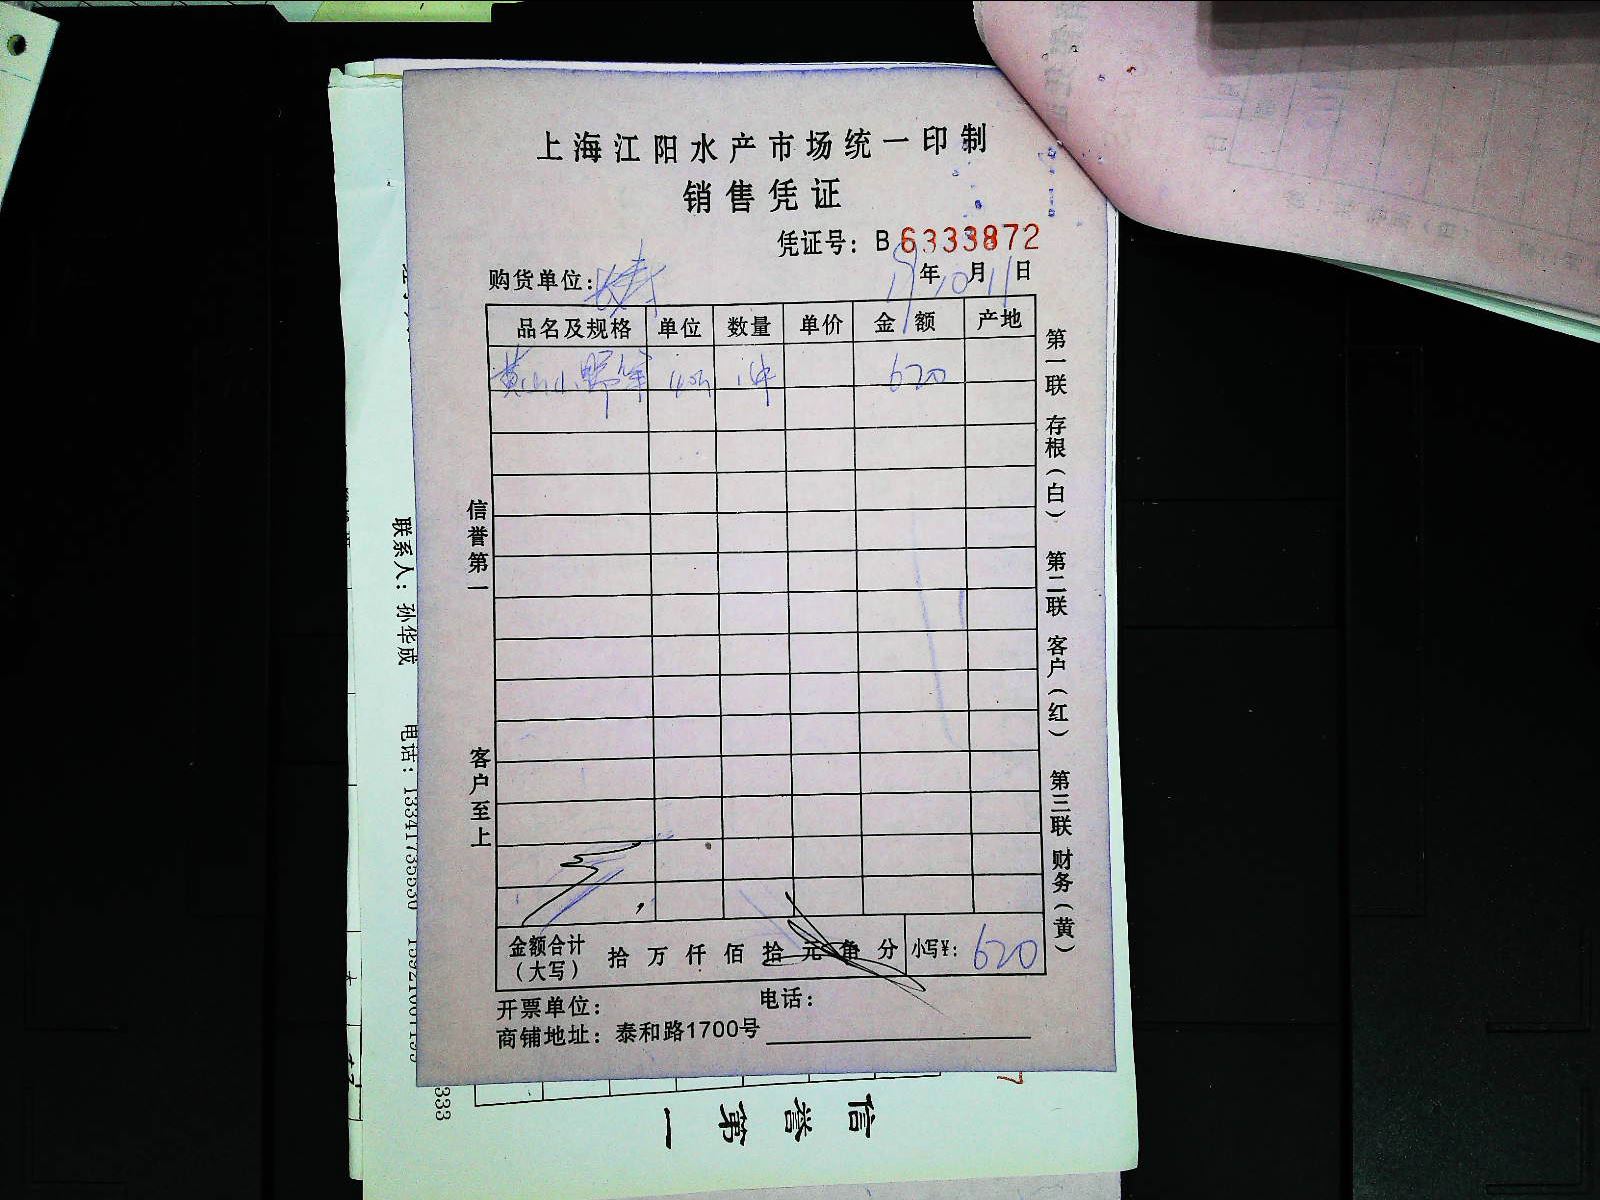 上海江阳水产市场统一印制
销售凭证
凭证号：B 6333872
购货单位：
19年10月11日
品名及规格 单位 数量 单价 金额 产地
黄山小野笋 1件 620
信誉第一
客户至上
第一联 存根（白） 第二联 客户（红） 第三联 财务（黄）
金额合计（大写） 拾 万 仟 佰 拾 元 角 分 小写¥： 620
开票单位： 电话：
商铺地址：泰和路1700号
联系人：孙华成 电话：
333
信誉第一